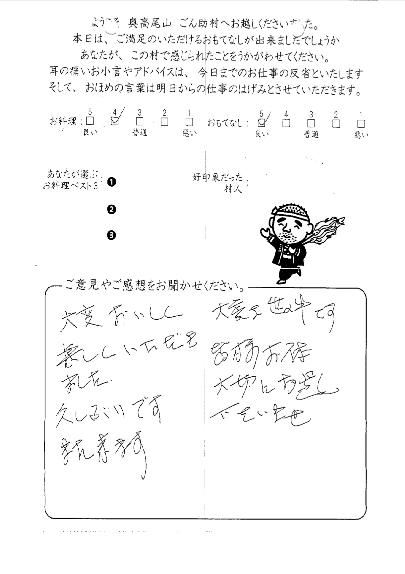 ようこそ 奥高尾山 ごん助村へお越しくださいました。
本日は、ご満足のいただけるおもてなしが出来ましたでしょうか
あなたが、この村で感じられたことをうかがわせてください。
耳の痛いお小言やアドバイスは、今日までのお仕事の反省といたします
そして、おほめの言葉は明日からの仕事のはげみとさせていただきます。
お料理: 5 4 3 2 1
良い 普通 悪い
おもてなし: 5 4 3 2 1
良い 普通 悪い
あなたが選ぶ
お料理ベスト3
❶
❷
❸
好印象だった
村人
ご意見やご感想をお聞かせください。
大変おいしく
楽しくいただき
ました
久しぶりです
また来ます
大変な世の中です
皆様お体
大切にお過し
下さいませ